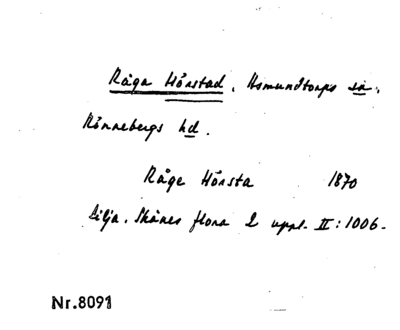 Råga Hörstad, Asmundtorps sn.
Rönnebergs hd.
Råge Hörsta 1870
Lilja. Skånes flora 2 uppl. II: 1006.
Nr.8091